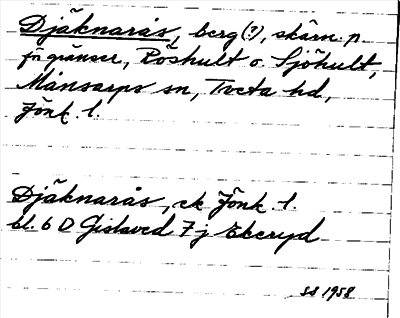 Djäknarås, berg (?), skärn. p.
för gränser, Röshult o. Sjöhult,
Månsarps sn, Tveta hd,
Jönk. l.
Djäknarås, ek Jönk. l.
bl. 6 D Gislaved 7 j Ekeryd
SS 1958